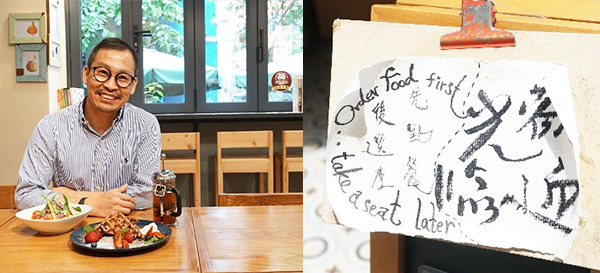 Order food first
先點餐
後選座
...take a seat later
歡迎
光臨